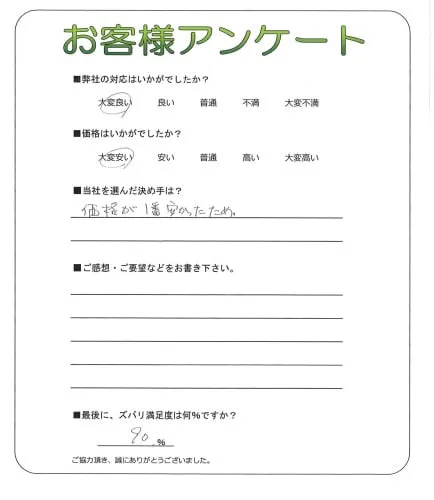 お客様アンケート
■弊社の対応はいかがでしたか？
大変良い 良い 普通 不満 大変不満
■価格はいかがでしたか？
大変安い 安い 普通 高い 大変高い
■当社を選んだ決め手は？
価格が1番安かったため。
■ご感想・ご要望などをお書き下さい。
■最後に、ズバリ満足度は何％ですか？
90 %
ご協力頂き、誠にありがとうございました。